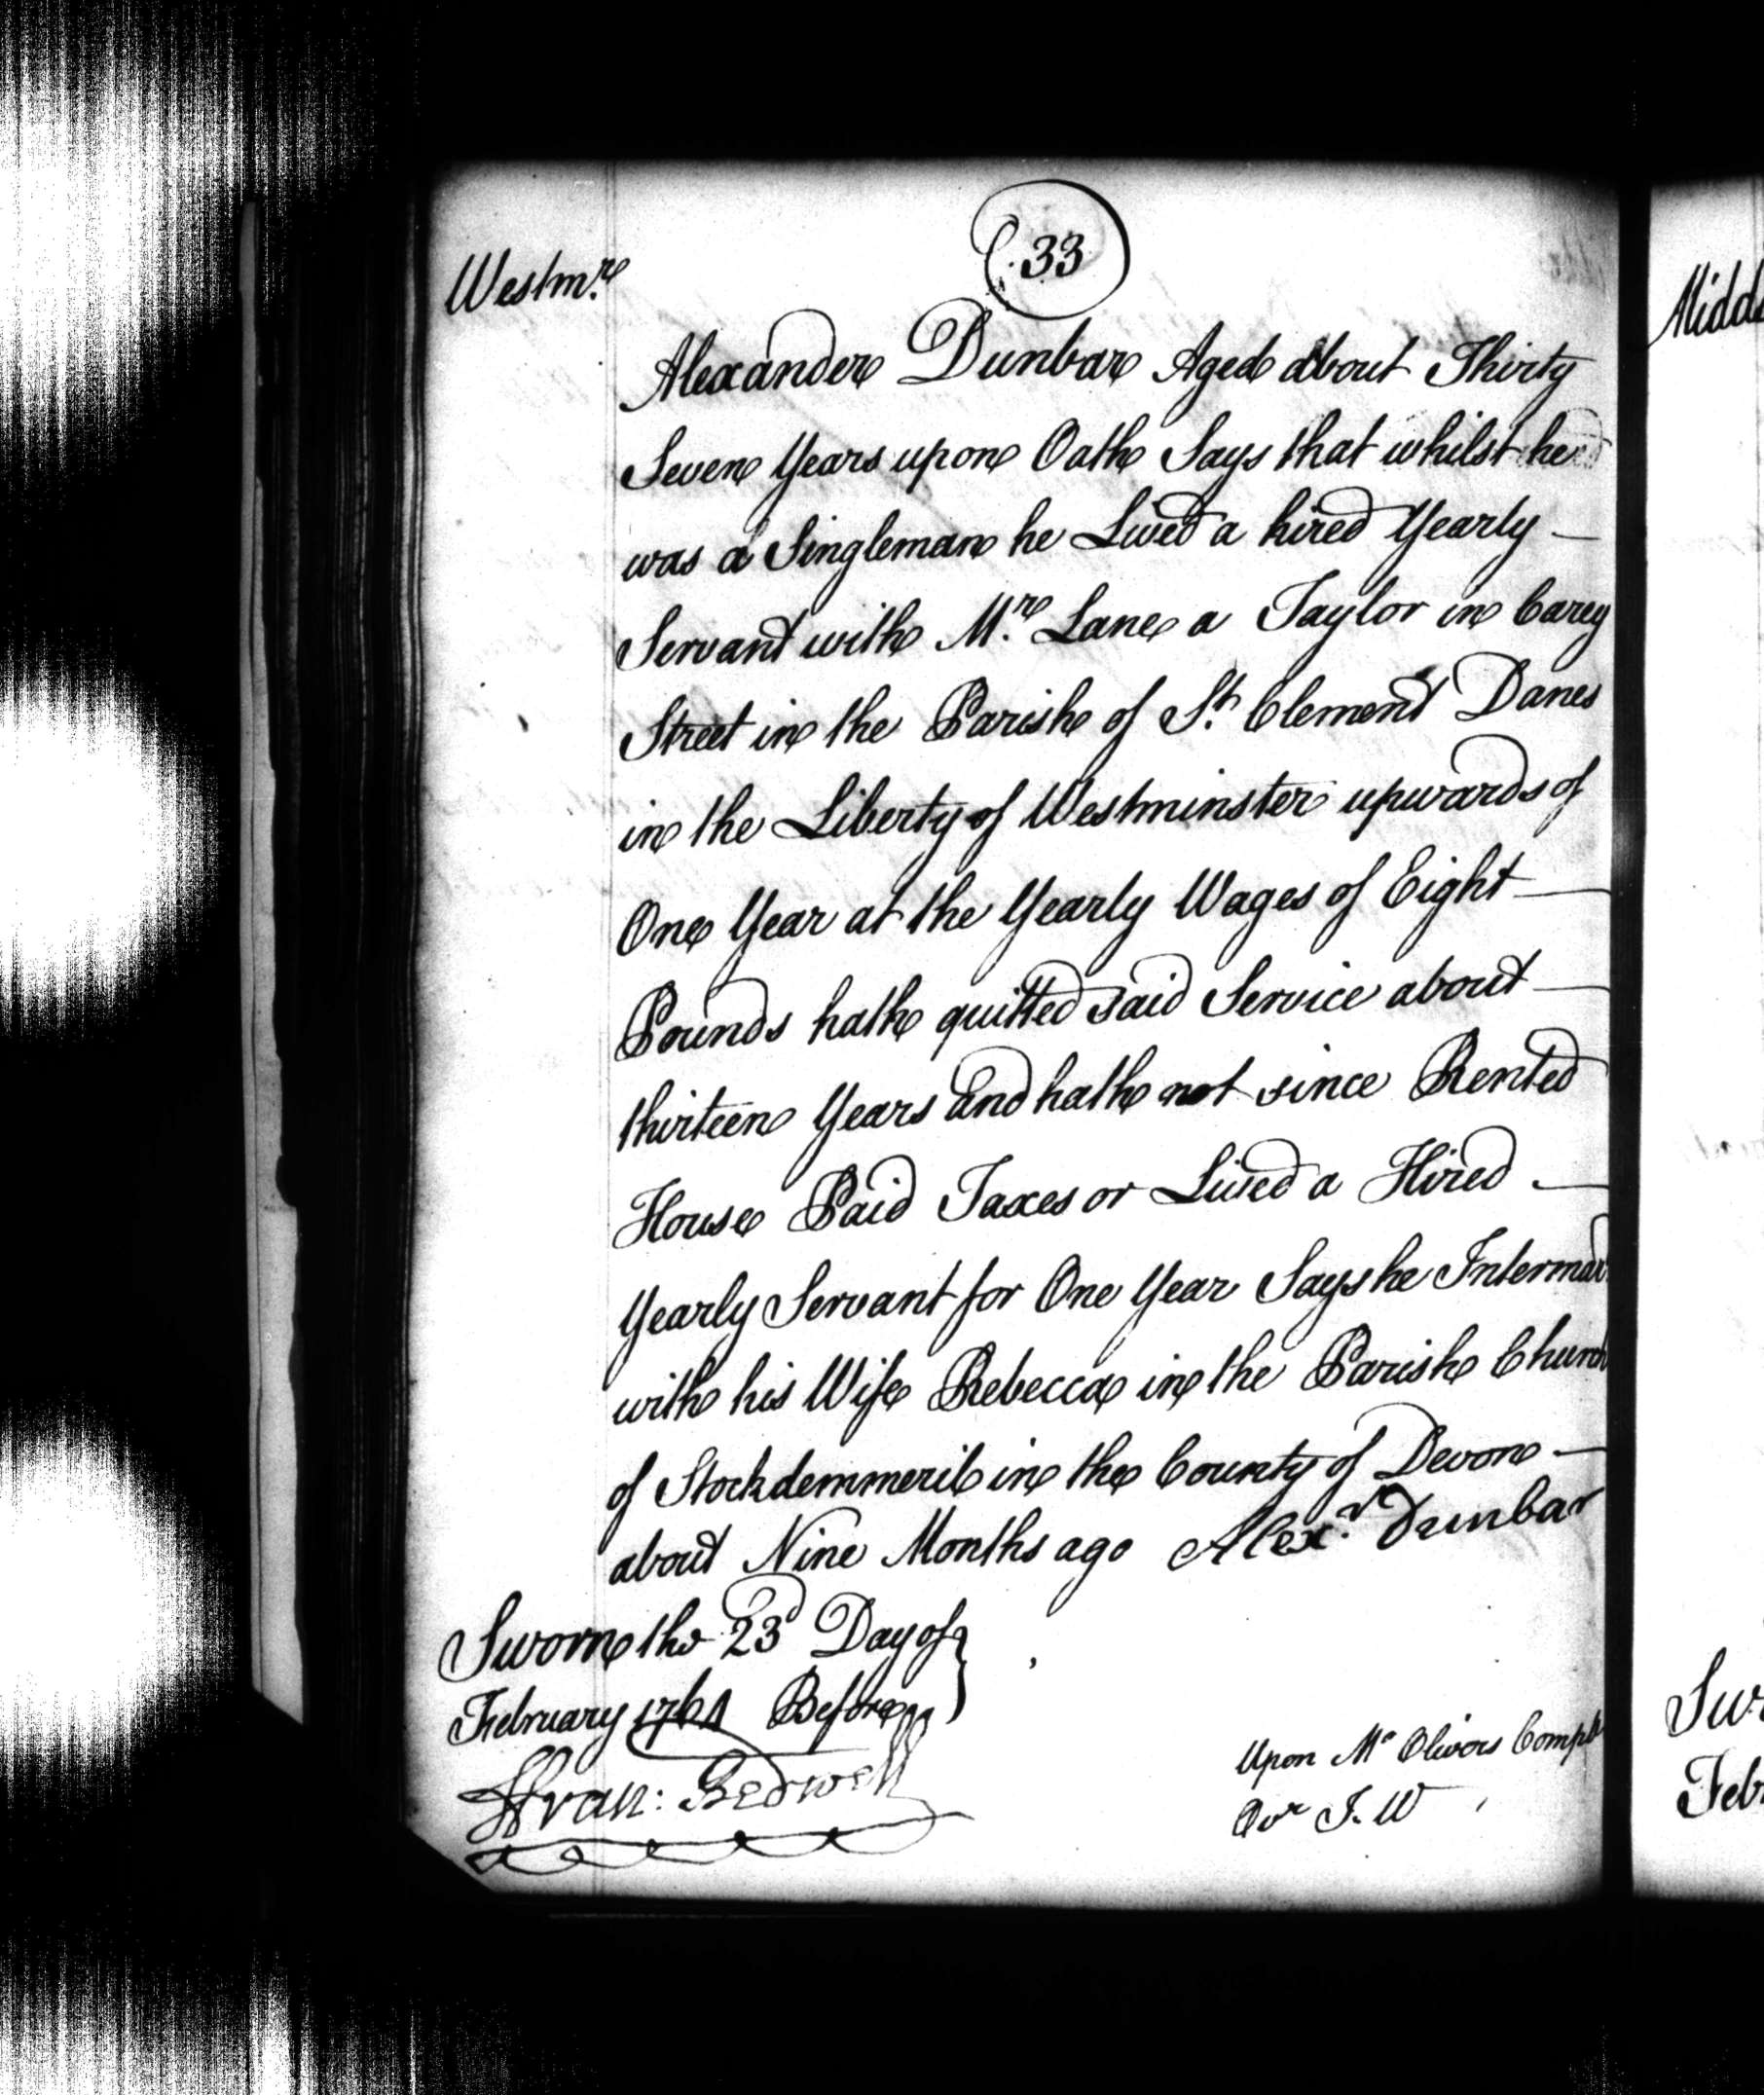 33
Westmr.
Alexander Dunbar Aged about Thirty
Seven Years upon Oath Says that whilst he
was a Singleman he Lived a hired Yearly —
Servant with Mr. Lane a Taylor in Carey
Street in the Parish of St. Clement Danes
in the Liberty of Westminster upwards of
One Year at the Yearly Wages of Eight —
Pounds hath quitted said Service about —
thirteen Years And hath not since Rented
House Paid Taxes or Lived a Hired —
Yearly Servant for One Year Says he Intermar
with his Wife Rebecca in the Parish Church
of Stockdemmeril in the County of Devon —
about Nine Months ago Alexr. Dunbar
Sworn the 23d Day of
February 1764 Before
Fran: Bedwell
Upon Mr Olivers Compl
Ovr J. W
Midd
Sw
Feb